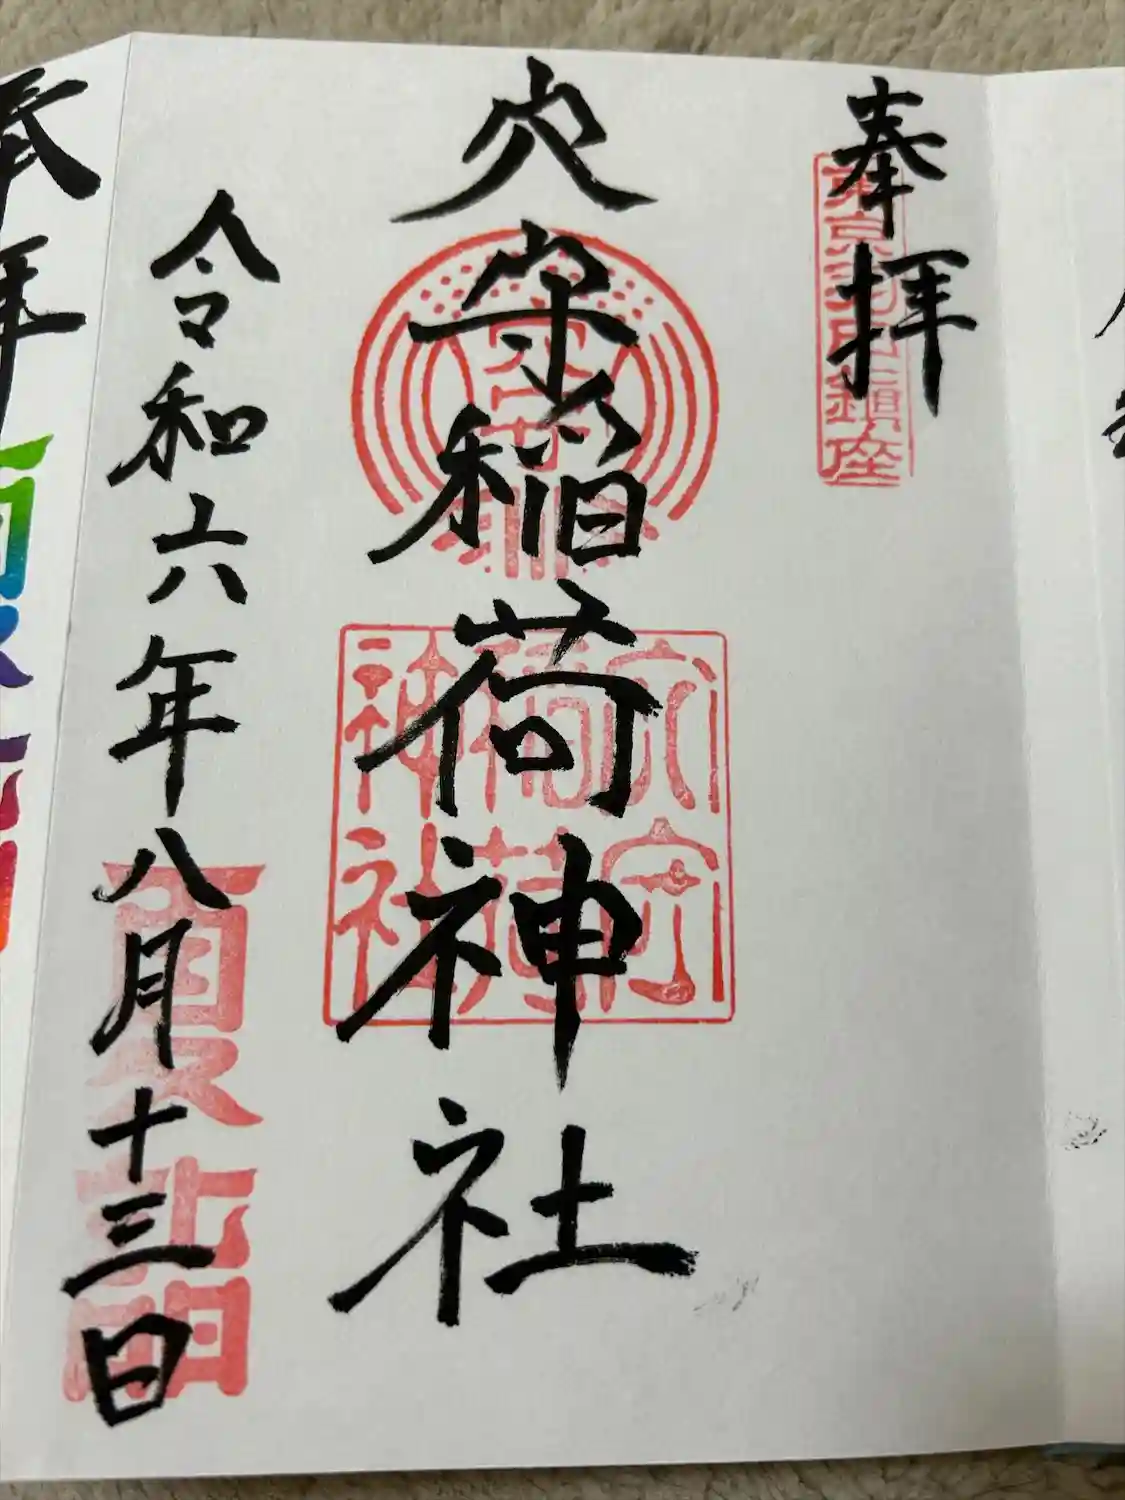 奉拝
東京羽田鎮座
穴守稲荷神社
穴守
稲荷
神社
令和六年八月十三日
夏詣